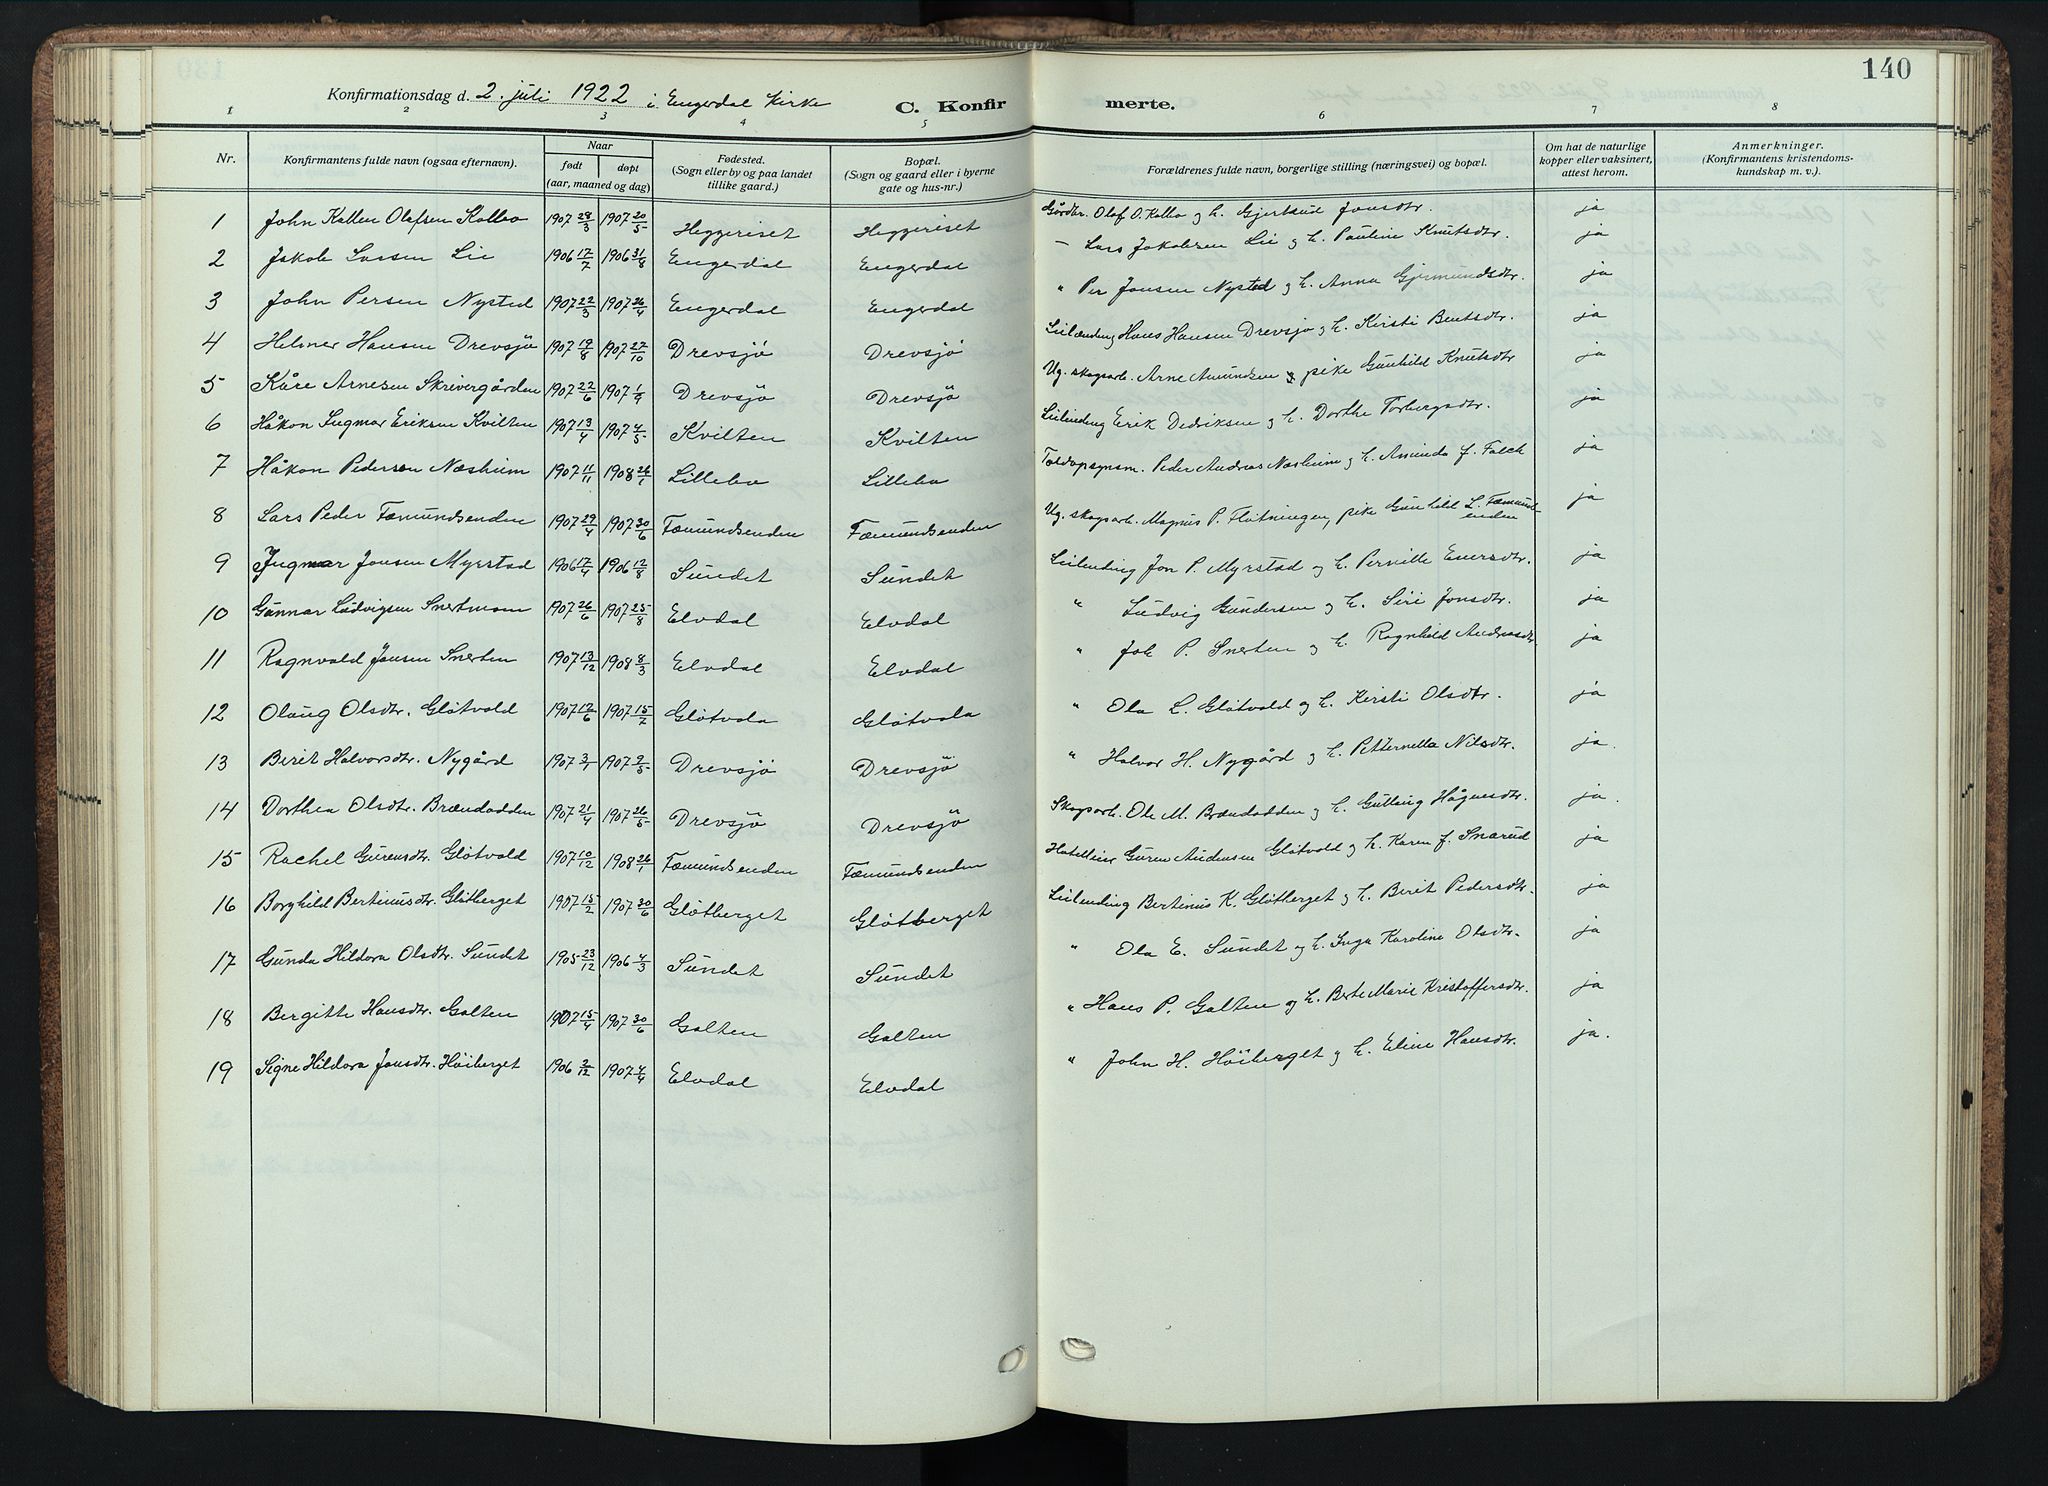 140
Konfirmationsdag d. 2. juli 1922 i Engerdal kirke C. Konfirmerte.
1 2 3 4 5 6 7 8
Nr. Konfirmantens fulde navn (ogsaa efternavn). Naar født døpt (aar, maaned og dag) Fødested. (Sogn eller by og paa landet tillike gaard.) Bopæl. (Sogn og gaard eller i byerne gate og hus-nr.) Forældrenes fulde navn, borgerlige stilling (næringsvei) og bopæl. Om hat de naturlige kopper eller vaksinert, attest herom. Anmerkninger. (Konfirmantens kristendomskundskap m. v.).
1 John Kollen Olafsen Kolbo 1907 28/3 1907 20/5 Heggeriset Heggeriset Gårdbr. Olaf O. Kolbo og h. Gjertrud Jonsdtr. ja
2 Jakob Larsen Lie 1906 17/7 1906 31/8 Engerdal Engerdal - Lars Jakobsen Lie og h. Pauline Knutsdtr. ja
3 John Persen Nysted 1907 22/3 1907 26/4 Engerdal Engerdal " Per Jonsen Nysted og h. Anna Gjermundsdtr. ja
4 Helmer Hansen Drevsjö 1907 19/8 1907 27/10 Drevsjö Drevsjö Leilænding Hans Hansen Drevsjö og h. Kirsti Bentsdtr. ja
5 Kåre Arnesen Skrivergården 1907 22/6 1907 Drevsjö Drevsjö Ug. skogsarb. Arne Amundsen og pike Gunhild Knutsdtr ja
6 Håkon Ingmar Eriksen Kvilten 1907 13/4 1907 4/5 Kvilten Kvilten Leilending Erik Dedriksen og h. Dorthe Torbergsdtr. ja
7 Håkon Pedersen Næsheim 1907 11/11 1908 26/1 Lillebo Lillebo Toldopsynsm. Peder Andreas Næsheim og h. Amunda f. Falch ja
8 Lars Peder Fæmundsenden 1907 29/4 1907 30/6 Fæmundsenden Fæmundsenden Ug. skogsarb. Magnus P. Flötningen, pike Gunhild L. Fæmundsenden ja
9 Ingmar Jonsen Myrstad 1906 17/4 1906 12/8 Sundet Sundet Leilending Jon P. Myrstad og h. Pernille Enersdtr. ja
10 Gunnar Ludvigsen Snertmoen 1907 26/6 1907 25/8 Elvdal Elvdal " Ludvig Gundersen og h. Siri Jonsdtr. ja
11 Ragnvald Jonsen Snerten 1907 13/12 1908 8/3 Elvdal Elvdal " Joh P. Snerten og h. Ragnhild Andreasdtr. ja
12 Olaug Olsdtr. Glötvold 1907 17/6 1907 15/7 Glötvola Glötvola " Ola L. Glötvold og h. Kirsti Olsdtr. ja
13 Berit Halvorsdtr. Nygård 1907 3/1 1907 9/5 Drevsjö Drevsjö " Halvor H. Nygård og h. Petternella Nilsdtr. ja.
14 Dorthea Olsdtr. Brændodden 1907 21/4 1907 26/5 Drevsjö Drevsjö Skogsarb. Ole M. Brændodden og h. Gulling Hågensdtr. ja.
15 Rachel Gurensdtr. Glötvold 1907 10/12 1908 26/1 Fæmundsenden Fæmundsenden Hotelleier Guren Andersen Glötvold og h. Karen f. Snarud ja
16 Borghild Bertinusdtr. Glötberget 1907 15/2 1907 30/6 Glötberget Glötberget Leilending Bertinus K. Glötberget og h. Berit Pedersdtr. ja
17 Gunda Hildora Olsdtr. Sundet 1905 23/12 1906 4/3 Sundet Sundet " Ola E. Sundet og h. Inga Karoline Olsdtr. ja
18 Bergitte Hansdtr. Galten 1907 15/4 1907 30/6 Galten Galten " Hans P. Galten og h. Berte Marie Kristoffersdtr. ja
19 Signe Hildora Jonsdtr. Höiberget 1906 2/12 1907 4/4 Elvdal Elvdal " John H. Höiberget og h. Eline Hansdtr. ja.